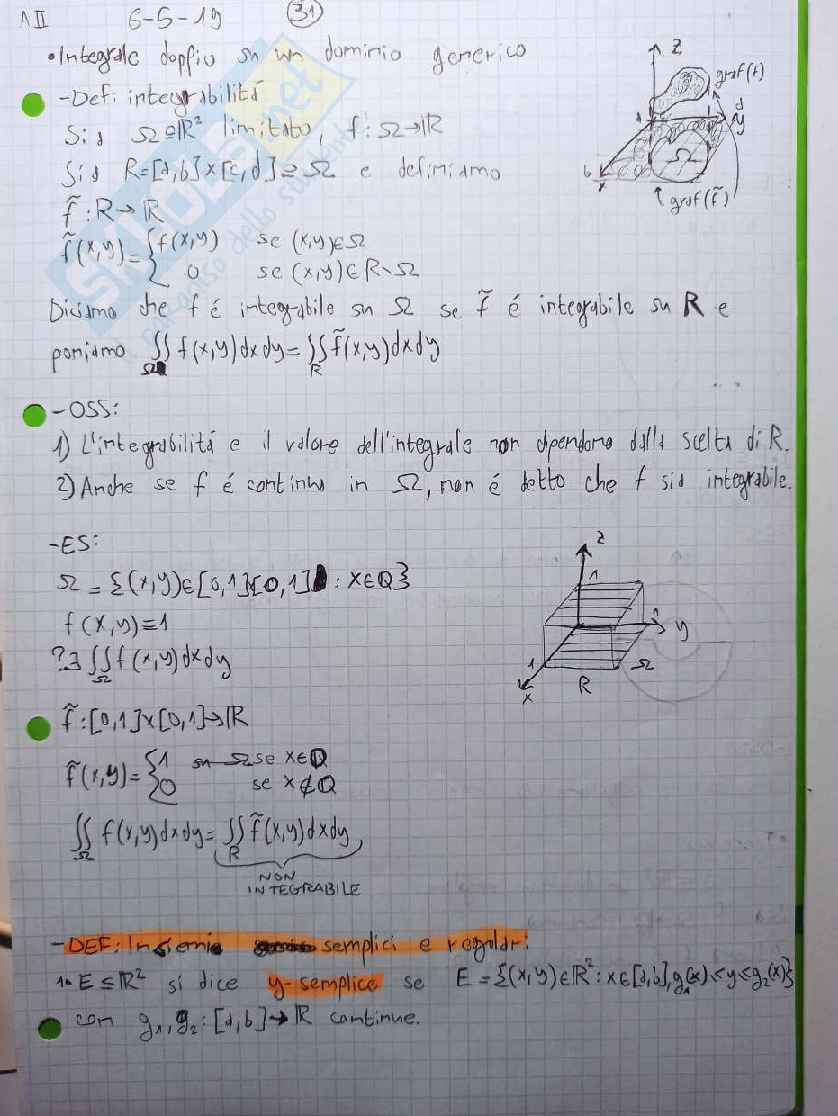 AII 6-5-19 31
• Integrale doppio su un dominio generico
- Def: integrabilitá
Sia Ω⊆ℝ² limitato, f: Ω→ℝ
Sia R=[a,b]×[c,d]⊇Ω e definiamo
f̃: R→ℝ
f̃(x,y)={f(x,y) se (x,y)∈Ω
0 se (x,y)∈R∖Ω
Diciamo che f é integrabile su Ω se f̃ é integrabile su R e
poniamo ∬_Ω f(x,y)dxdy=∬_R f̃(x,y)dxdy
z
graf(f)
a
d
y
b
x
Ω
graf(f̃)
- OSS:
1) L'integrabilitá e il valore dell'integrale non dipendono dalla scelta di R.
2) Anche se f é continua in Ω, non é detto che f sia integrabile.
- ES:
Ω={(x,y)∈[0,1]×[0,1] : x∈Q}
f(x,y)≡1
?∃∬_Ω f(x,y)dxdy
z
1
1
y
1
Ω
x
R
f̃:[0,1]×[0,1]→ℝ
f̃(x,y)={1 su Ω se x∈Q
0 se x∉Q
∬_Ω f(x,y)dxdy=∬_R f̃(x,y)dxdy
NON
INTEGRABILE
- DEF: Insiemi semplici e regolari:
1• E⊆ℝ² si dice y-semplice se E={(x,y)∈ℝ²: x∈[a,b], g₁(x)<y<g₂(x)}
con g₁, g₂: [a,b]→ℝ continue.